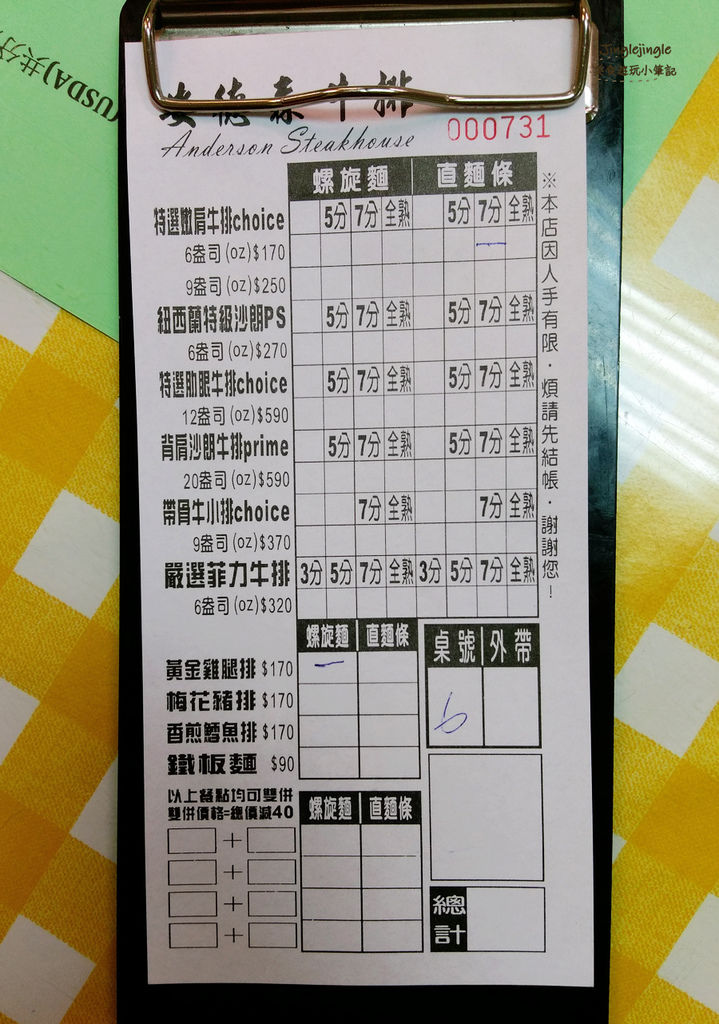 (USDA)共分
Jinglejingle
玩小筆記
安德森牛排
Anderson Steakhouse
000731
螺旋麵 直麵條
特選嫩肩牛排choice 5分 7分 全熟 5分 7分 全熟
6盎司(oz)$170 一
9盎司(oz)$250
紐西蘭特級沙朗PS 5分 7分 全熟 5分 7分 全熟
6盎司(oz)$270
特選肋眼牛排choice 5分 7分 全熟 5分 7分 全熟
12盎司(oz)$590
背肩沙朗牛排prime 5分 7分 全熟 5分 7分 全熟
20盎司(oz)$590
帶骨牛小排choice 7分 全熟 7分 全熟
9盎司(oz)$370
嚴選菲力牛排 3分 5分 7分 全熟 3分 5分 7分 全熟
6盎司(oz)$320
※本店因人手有限・煩請先結帳・謝謝您!
螺旋麵 直麵條
黃金雞腿排 $170 一
梅花豬排 $170
香煎鱈魚排 $170
鐵板麵 $90
桌號 外帶
6
以上餐點均可雙併
雙併價格=總價減40
螺旋麵 直麵條
+
+
+
+
總計